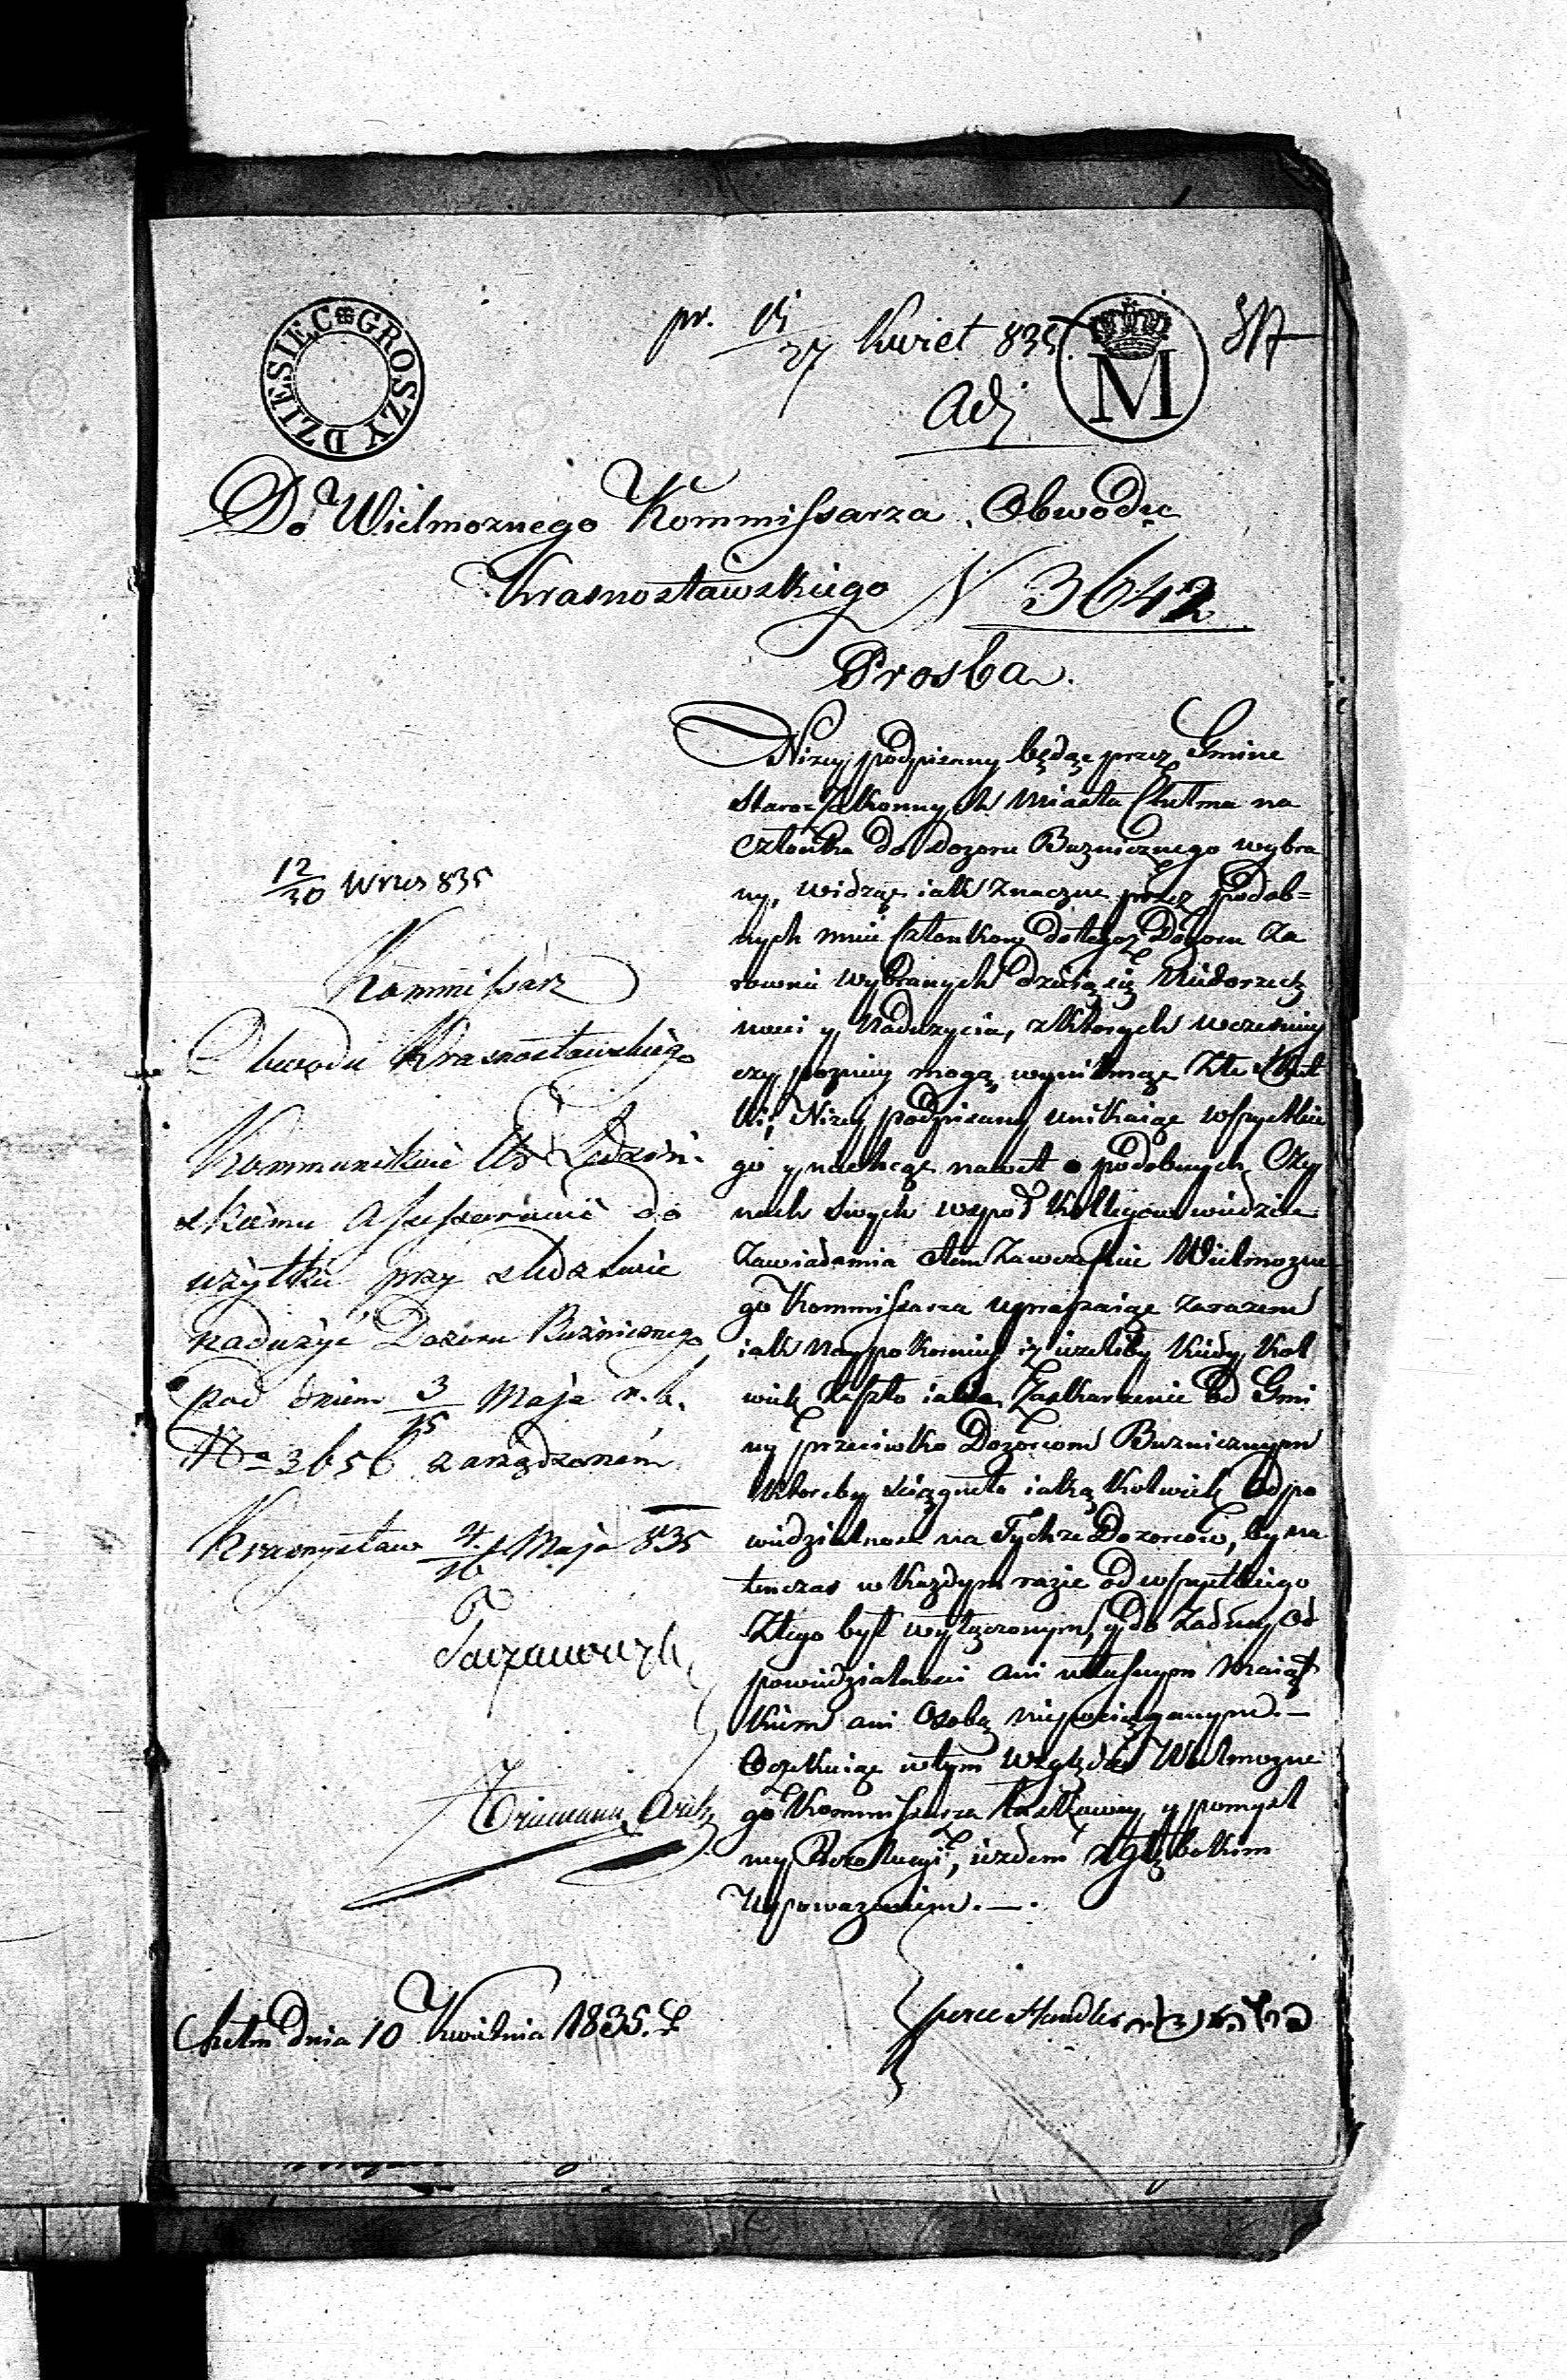 DZIESIĘC GROSZY
pr. 15/27 Kwiet 835.
M
Adj
Do Wielmoznego Kommissarza Obwodu
Krasnostawskiego N 3642
Prosba.
Nizey podpisany będąc przez Gmine
Staro=Zakonnych Miasta Chełma na
Członka do Dozoru Buznicznego wybra
ny, widząc iak znaczne przez podob=
nych mnie Członkow do tegoz Dozoru za
rownie wybranych dzieią się Niedorzecz
nosci y Naduzycia, z ktorych wczesniey
czy pozniey mogą wyniknąc Złe Skut
ki; Nizey podpisany unikaiąc wszystkie
go y niechcąc nawet o podobnych Czy
nach swych wspoł Kollegow wiedziec
Zawiadamia o tem Zawczasnie Wielmozne
go Kommissarza upraszaiąc zarazem
iak naypokorniey iz iezeliby kiedy kol
wiek zaszło iakie Zaskarzenie od Gmi
ny przeciwko Dozorcom Buznicznym
ktoreby sciągneło iaką kolwiek odpo
wiedzialnosc na Tychze Dozorcow, by na
tenczas w kazdym razie od wszystkiego
Złego był wyłączonym, y do zadney od
powiedzialnosci ani własnym Maiąt
kiem ani Osobą niepociąganym.—
Oczekuiąc w tym względzie Wielmozne
go Kommissarza łaskawey y pomysl
ney Rezolucyi, iezdem z głębokim
Uszanowaniem.—.
Chełm Dnia 10 Kwietnia 1835. r
Handler
12/30 Wrzes 835
Kommissarz
Obwodu Krasnostawskiego
Kommunikuie
skiemu Assessorowi do
użytku przy sledztwie
nadużyć Dozoru Bużnicznego
pod dniem 3/15 Maja r. b.
No 3656 zarządzonem
Krasnystaw 4/16 Maja 835